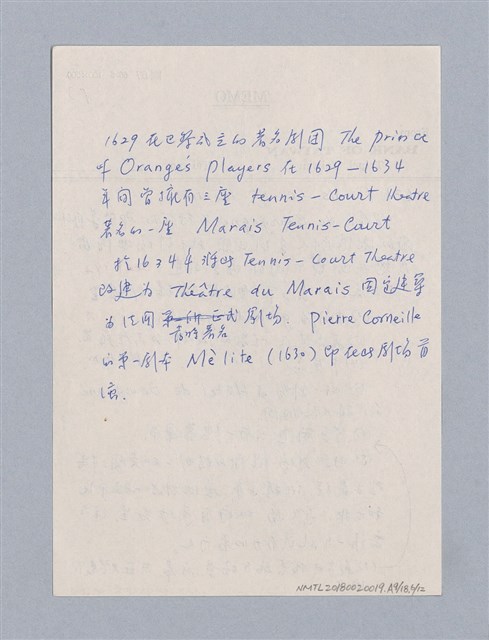 1629 在巴黎成立的著名劇団 The prince
of Orange's players 在 1629 — 1634
年间曾擁有三座 tennis - Court theatre
著名的一座 Marais Tennis-Court
於1634年將此 Tennis-Court Theatre
改建为 Théâtre du Marais 固定建築
为法国第一所正式劇场. Pierre Corneille
當時著名
的第一劇本 Mélite (1630) 即在此劇场首
演.
NMTL20180020019.A9/18.4/12
MEMO